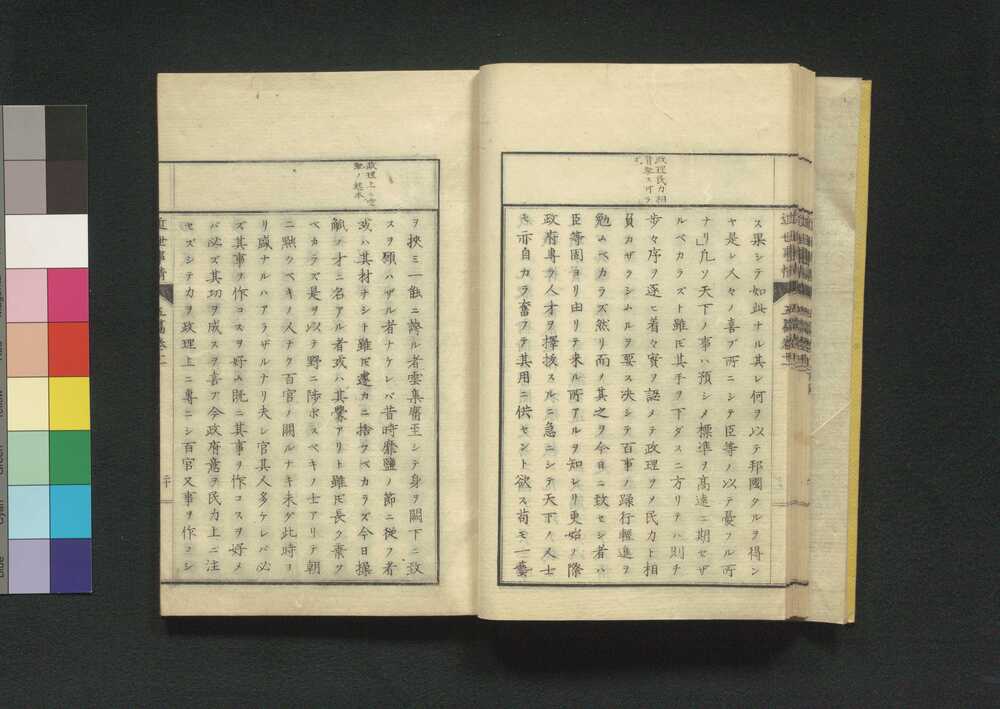 政理民力相
ス果シテ如此ナル其レ何ヲ以テ邦國タルヲ得ン
ヤ是レ人々ノ喜ブ所ニシテ臣等ノ以テ憂フル所
ナリ凡ソ天下ノ事ハ預シメ標準ヲ高遠ニ期セザ
ルベカラズト雖𪜈其手ヲ下ダスニ方リテハ則チ
歩々序ヲ逐ヒ着々實ヲ認メテ政理ヲメ民力ト相
負カザラシムルヲ要ス决シテ百事ノ躁行輕進ヲ
勉ムベカラズ然リ而メ其之ヲ今日ニ致セシ者ハ
臣等固ヨリ由リテ來ル所アルヲ知レリ更始ノ際
政府專ラ人才ヲ擇拔スルニ急ニシテ天下ノ人士
モ亦自カラ奮フテ其用ニ供セント欲ス苟モ一藝
近世事情
政理上
ヲ挾ミ一能ニ誇ル者雲集麕至シテ身ヲ闕下ニ致
スヲ願ハザル者ナケレバ昔時靡鹽ノ節ニ從フ者
或ハ其材ナシト雖𪜈遽カニ捨ツベカラズ今日操
觚ノ才ニ名アル者或ハ其釁アリト雖𪜈長ク棄ツ
ベカラズ是ヲ以テ野ニ陟ボスベキノ士アリテ朝
ニ黜クベキノ人ナク百官ノ闕ルナキ未ダ此時ヨ
リ盛ナルハアラザルナリ夫レ官其人多ケレバ必
ズ其事ヲ作コスヲ好ム既ニ其事ヲ作コスヲ好メ
バ必ズ其功ヲ成スヲ喜ブ今政府意ヲ民力上ニ注
セズシテ力ヲ政理上ニ專ニシ百官又事ヲ作コシ
近世事情 五篇卷二